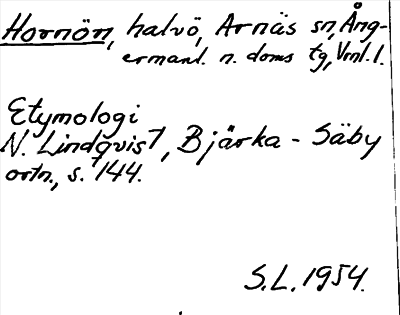 Hornön, halvö, Arnäs sn, Ång-
ermanl. n. doms tg, Vrnl. l.
Etymologi
N. Lindqvist, Bjärka-Säby
ortn., s. 144.
S.L. 1954.